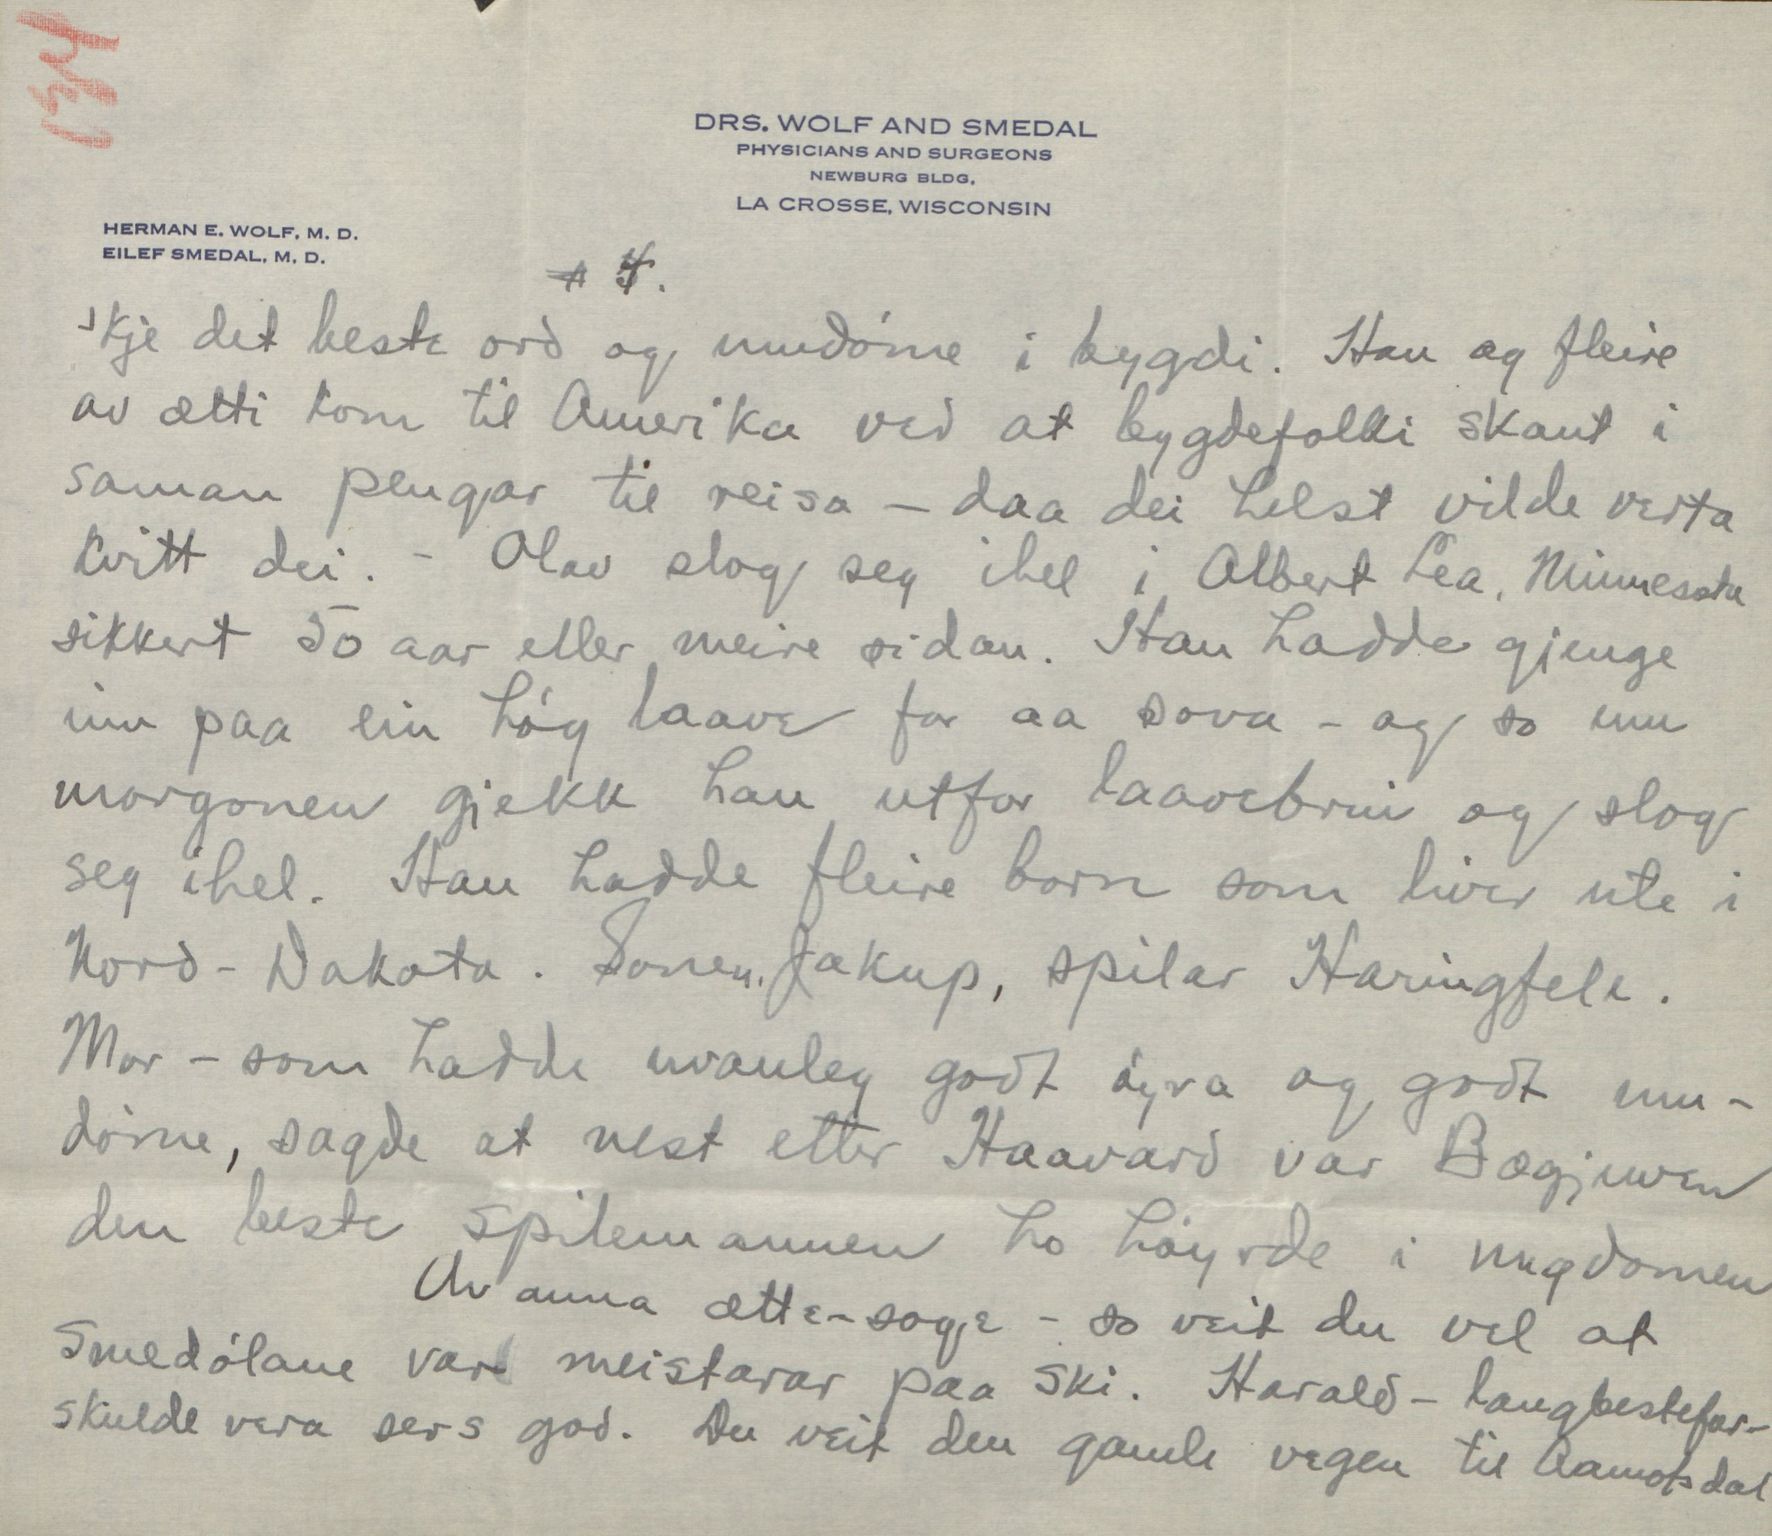 DRS. WOLF AND SMEDAL
PHYSICIANS AND SURGEONS
NEWBURG BLDG,
LA CROSSE, WISCONSIN
HERMAN E. WOLF, M. D.
EILEF SMEDAL, M. D.
4.
'kje det beste ord og umdóme i bygdi. Han og fleire
av ætti kom til Amerika ved at bygdefolki skaut i
saman pengar til reisa – daa dei helst vilde verta
kvitt dei. – Olav slog seg ihel i Albert Lea, Minnesota
sikkert 50 aar eller meire sidan. Han hadde gjenge
inn paa ein hóg laave for aa sova – og so um
morgonen gjekk han utfor laavebrui og slog
seg ihel. Han hadde fleire born som liver ute i
Nord-Dakota. Sonen, Jakup, spilar Haringfele.
Mor – som hadde uvanleg godt óyra og godt um-
dóme, sagde at nest etter Haavard var Bægjuven
den beste spilemannen ho hóyrde i ungdomen
Av anna ætte-soge – so veit du vel at
Smedólane var meistarar paa ski. Harald – langbestefar –
skulde vera sers god. Du veit den gamle vegen til Aamotsdal